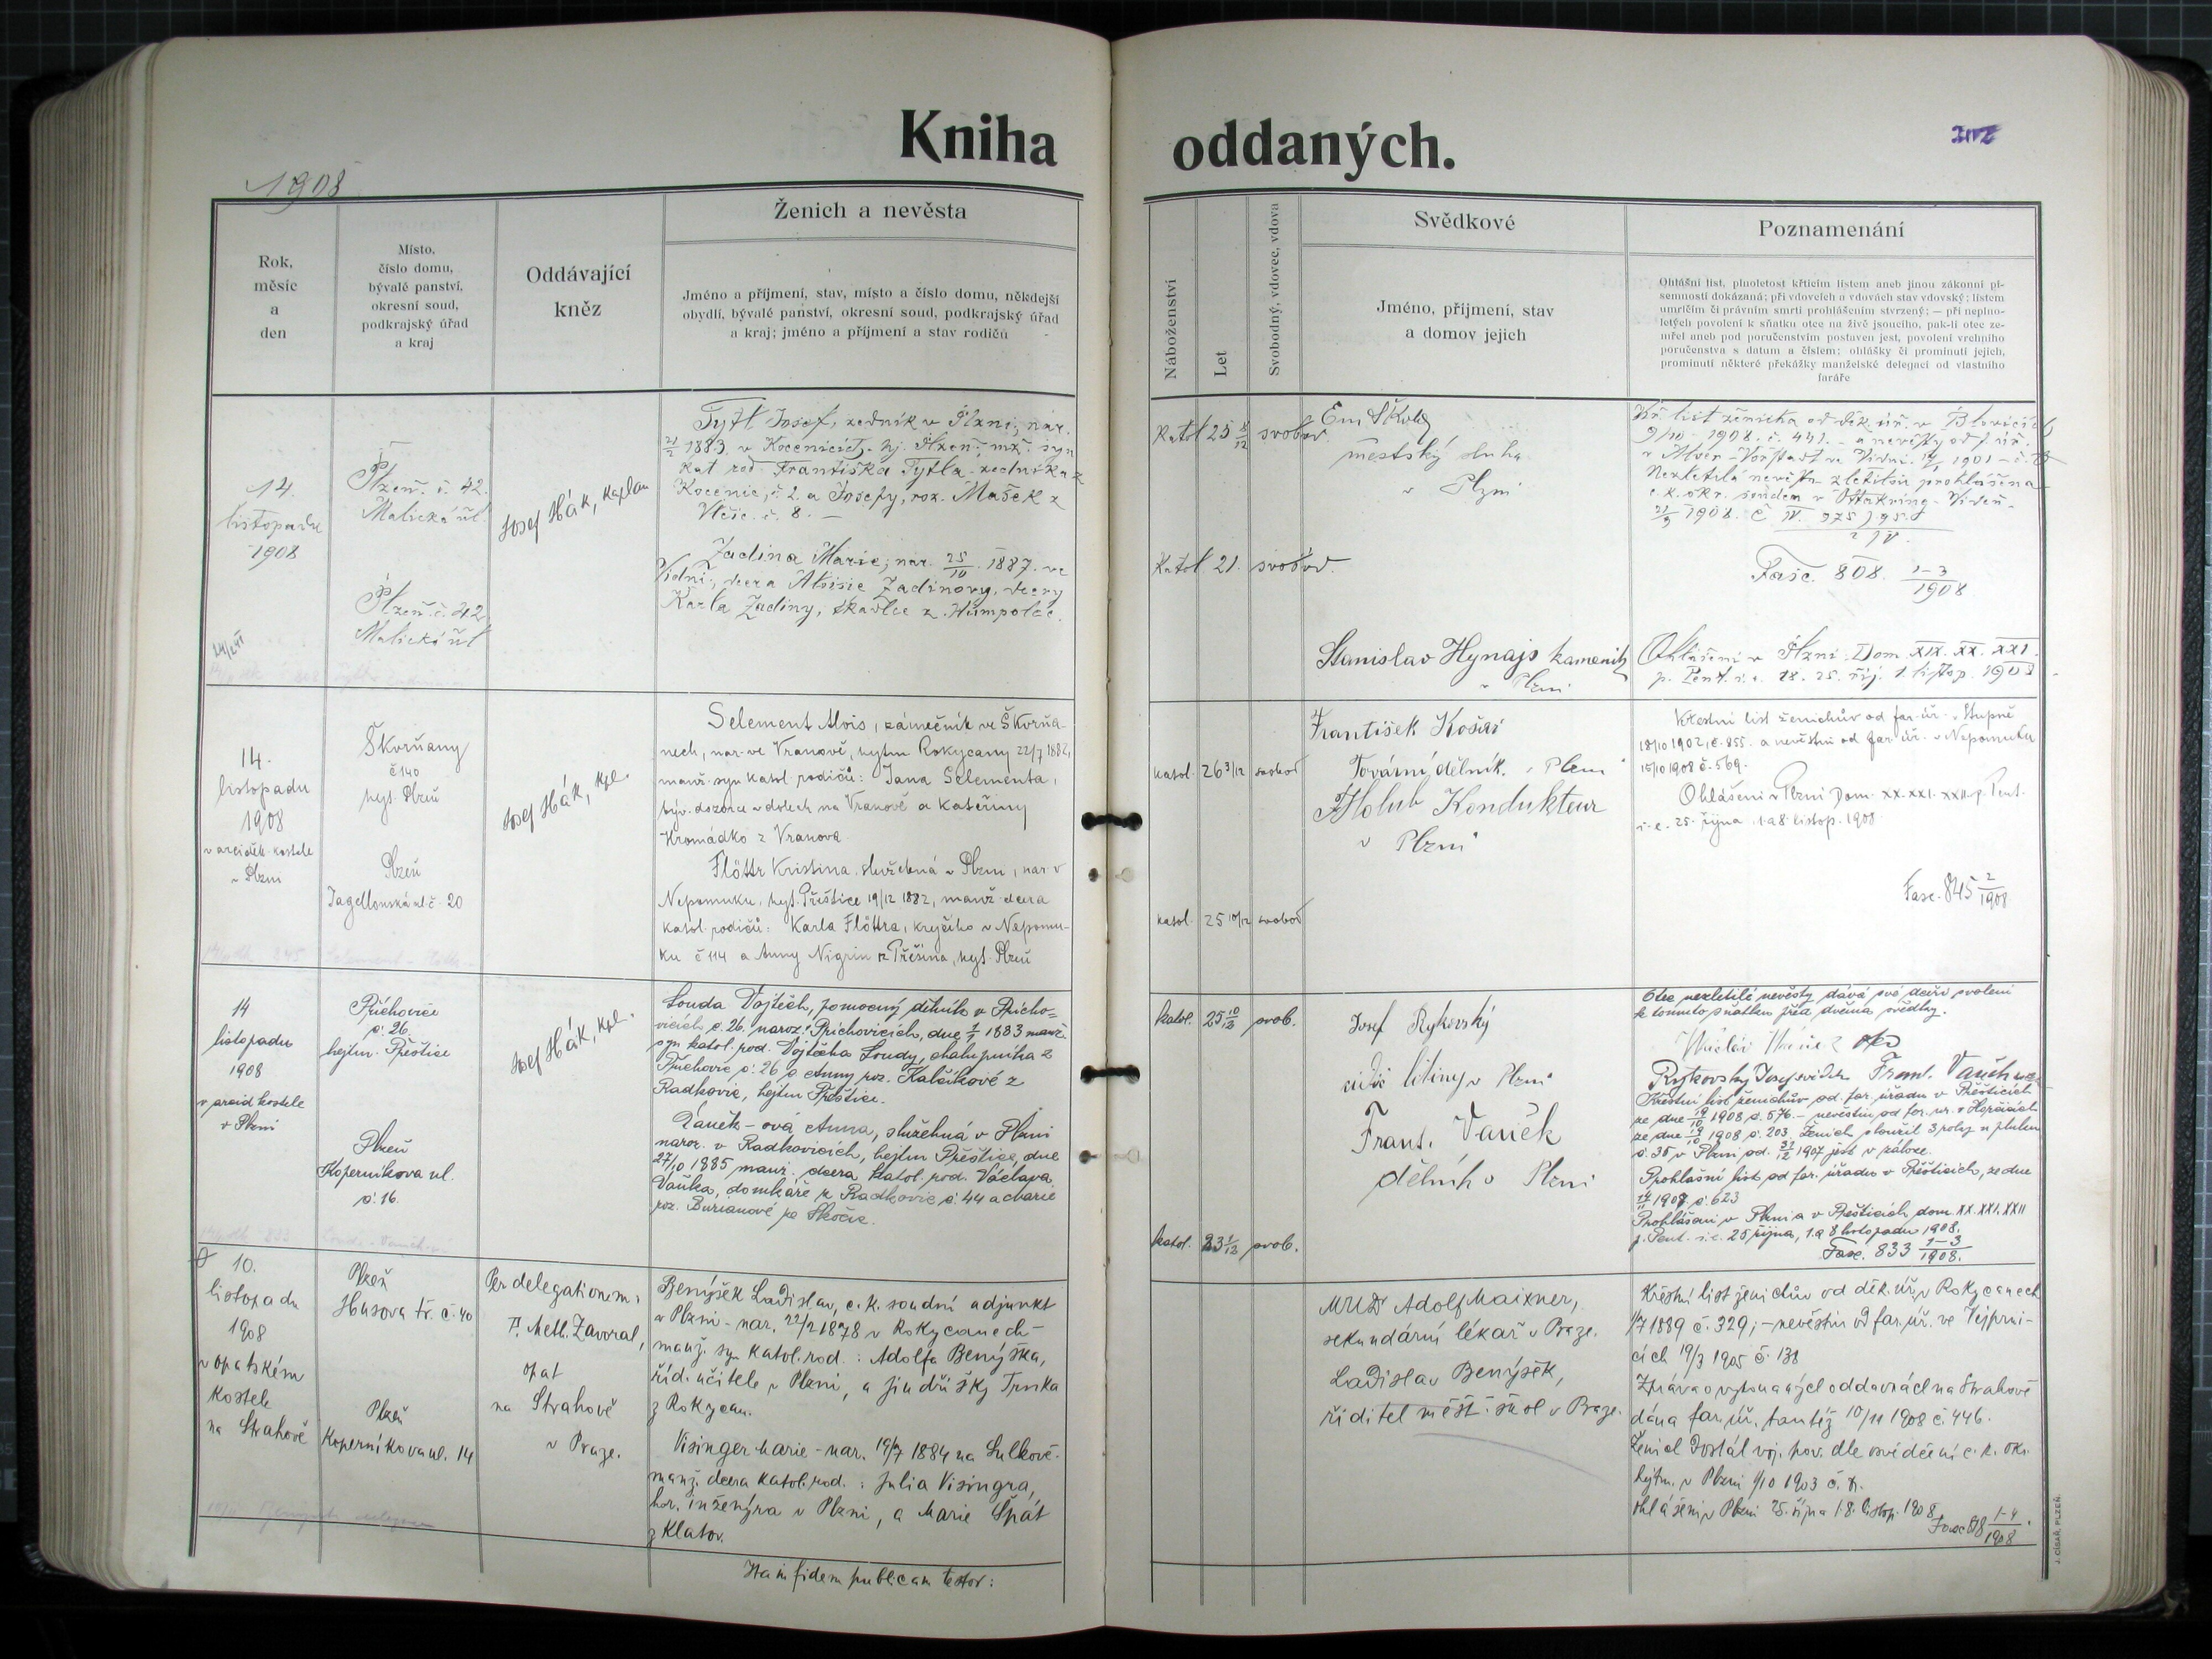 Kniha oddaných.
1908
Rok,
měsíc
a
den
Místo,
číslo domu,
bývalé panství,
okresní soud,
podkrajský úřad
a kraj
Oddávající
kněz
Ženich a nevěsta
Jméno a příjmení, stav, místo a číslo domu, někdejší
obydlí, bývalé panství, okresní soud, podkrajský úřad
a kraj; jméno a příjmení a stav rodičů
Náboženství
Let
Svobodný, vdovec, vdova
Svědkové
Jméno, příjmení, stav
a domov jejich
Poznamenání
Ohlášní list, plnoletost křticím listem aneb jinou zákonní pí-
semností dokázaná; při vdovcích a vdovách stav vdovský; listem
umrlčím či právním smrti prohlášením stvrzený; — při neplno-
letých povolení k sňatku otce na živě jsoucího, pak-li otec ze-
mřel aneb pod poručenstvím postaven jest, povolení vrchního
poručenstva s datum a číslem; ohlášky či prominutí jejich,
prominutí některé překážky manželské delegací od vlastního
faráře
14.
listopadu
1908
Plzeň. č. 42.
Malická ul.
Plzeň. č. 42
Malická ul
Josef Hák, kaplan
Tytl Josef, zedník v Plzni, nar.
1883. v Kocenicích, hj. Plzeň, mž. syn
kat. rod. Františka Tytla, zedníka z
Kocenic, č. 2. a Josefy, roz. Mašek z
Vlčic. č. 8. —
Zadina Marie, nar. 25/10. 1887. ve
Vídni, dcera Aloisie Zadinovy, dcery
Karla Zadiny, tkadlce z Humpolce.
Katol 25 svobod.
Katol 21. svobod.
městský sluha
v Plzni
Stanislav Hynajs kameník
v Plzni
Kř. list ženicha od děk. úř. v Blovicích
9/10 1908. č. 441. — a nevěsty od f. úř.
Nezletilá nevěsta zletilou prohlášena
c. k. okr. soudem v Ottakring-Vídeň
Fasc. 808. 1-3/1908
Ohlášeni v Plzni Dom. XIX. XX. XXI.
p. Pent. i. e. 18. 25. říj. 1. listop. 1908
14.
listopadu
1908
v arciděk. kostele
v Plzni
Škvrňany
č 140
hejt. Plzeň
Plzeň
Jagellonská ul. č. 20
Josef Hák, kpl.
Selement Alois, zámečník ve Škvrňa-
nech, nar. ve Vranově, hejtm Rokycany 22/7 1882,
manž. syn katol. rodičů: Jana Selementa,
býv. dozorce v dolech na Vranově a Kateřiny
Hromádko z Vranova.
Flöttr Kristina, služebná v Plzni, nar v
Nepomuku, hejt. Přeštice 19/12 1882, manž. dcera
katol. rodičů: Karla Flöttra, krejčího v Nepomu-
ku č 114 a Anny Nigrin z Třešina, hejt. Plzeň
katol. 26 3/12 svobod
katol. 25 10/12 svobod
František Košař
Tovární dělník. v Plzni
Holub Kondukteur
v Plzni
Křestní list ženichův od far. úř. v Stupně
18/10 1902, č. 855. a nevěstin od far. úř. v Nepomuku
15/10 1908 č. 569.
Ohlášeni v Plzni Dom. XX. XXI. XXII. p. Pent.
i. e. 25. října, 1. a 8. listop. 1908.
Fasc. 845 2/1908
14
listopadu
1908
v arcid kostele
v Plzni
Příchovice
č. 26.
hejtm. Přeštice
Plzeň
Koperníkova ul.
č. 16.
Josef Hák, kpl.
Louda Vojtěch, pomocný dělník v Přícho-
vicích č. 26. naroz. v Příchovicích, dne 1883 manž.
syn katol. rod. Vojtěcha Loudy, chalupníka z
Příchovic č. 26 a Anny roz. Kalčíkové z
Radkovic, hejtm Přeštice.
Vaněk-ová Anna, služebná v Plzni
naroz. v Radkovicích, hejtm Přeštice, dne
27/10 1885 manž. dcera katol. rod. Václava
Vaňka, domkáře z Radkovic č. 44 a Marie
roz. Burianové ze Skočic.
katol. 25 10/12 svob.
katol. 23 1/12 svob.
Josef Rykovský
cidič litiny v Plzni
Frant. Vaněk
dělník v Plzni
Otec nezletilé nevěsty dává své dceři svolení
k tomuto sňatku před dvěma svědky.
Rykovský Josef svědek Frant. Vaněk
Křestní list ženichův od far. úřadu v Přešticích
ze dne 1908 č. 576. — nevěstin od far. úř. v Horšicích
ze dne 1908 č. 203. Ženich sloužil 3 roky u pluku
č. 35 v Plzni od 1907 jest v záloze.
Prohlášní list od far. úřadu v Přešticích, ze dne
1908 č. 623
Prohlášeni v Plzni a v Přešticích, dom. XX. XXI. XXII
p. Pent. i. e. 25 října, 1. a 8 listopadu 1908.
Fasc. 833 1-3/1908.
10.
listopadu
1908
v opatském
kostele
na Strahově
Plzeň
Husova tř. č. 40
Plzeň
Koperníkova ul. 14
Per delegationem:
P. Meth. Zavoral,
opat
na Strahově
v Praze.
Benýšek Ladislav, c. k. soudní adjunkt
v Plzni – nar. 22/2 1878 v Rokycanech –
manž. syn katol. rod.: Adolfa Benýška,
říd. učitele v Plzni, a Jindřišky Trnka
z Rokycan.
Visinger Marie – nar. 14/7 1884 na Sulkově –
manž. dcera katol. rod.: Julia Visingra,
hor. inženýra v Plzni, a Marie Špát
z Klatov.
MUDr Adolf Maixner,
sekundární lékař v Praze.
Ladislav Benýšek,
ředitel měšť. škol v Praze.
Křestní list ženichův od děk. úř. v Rokycanech
1/7 1889 č. 329; – nevěstin od far. úř. ve Vejprni-
cích 19/3 1905 č. 138
Zpráva o vykonaných oddavkách na Strahově
dána far. úř. tamtéž 10/11 1908 č. 446.
Ženich dostál voj. pov. dle osvědčení c. k. okr.
hejtm. v Plzni 1903
ohlášeni v Plzni 25. října 1. 8. listop. 1908.
Fasc 818 1-4/1908
Ita in fidem publicam testor:
J. CÍSAŘ, PLZEŇ.